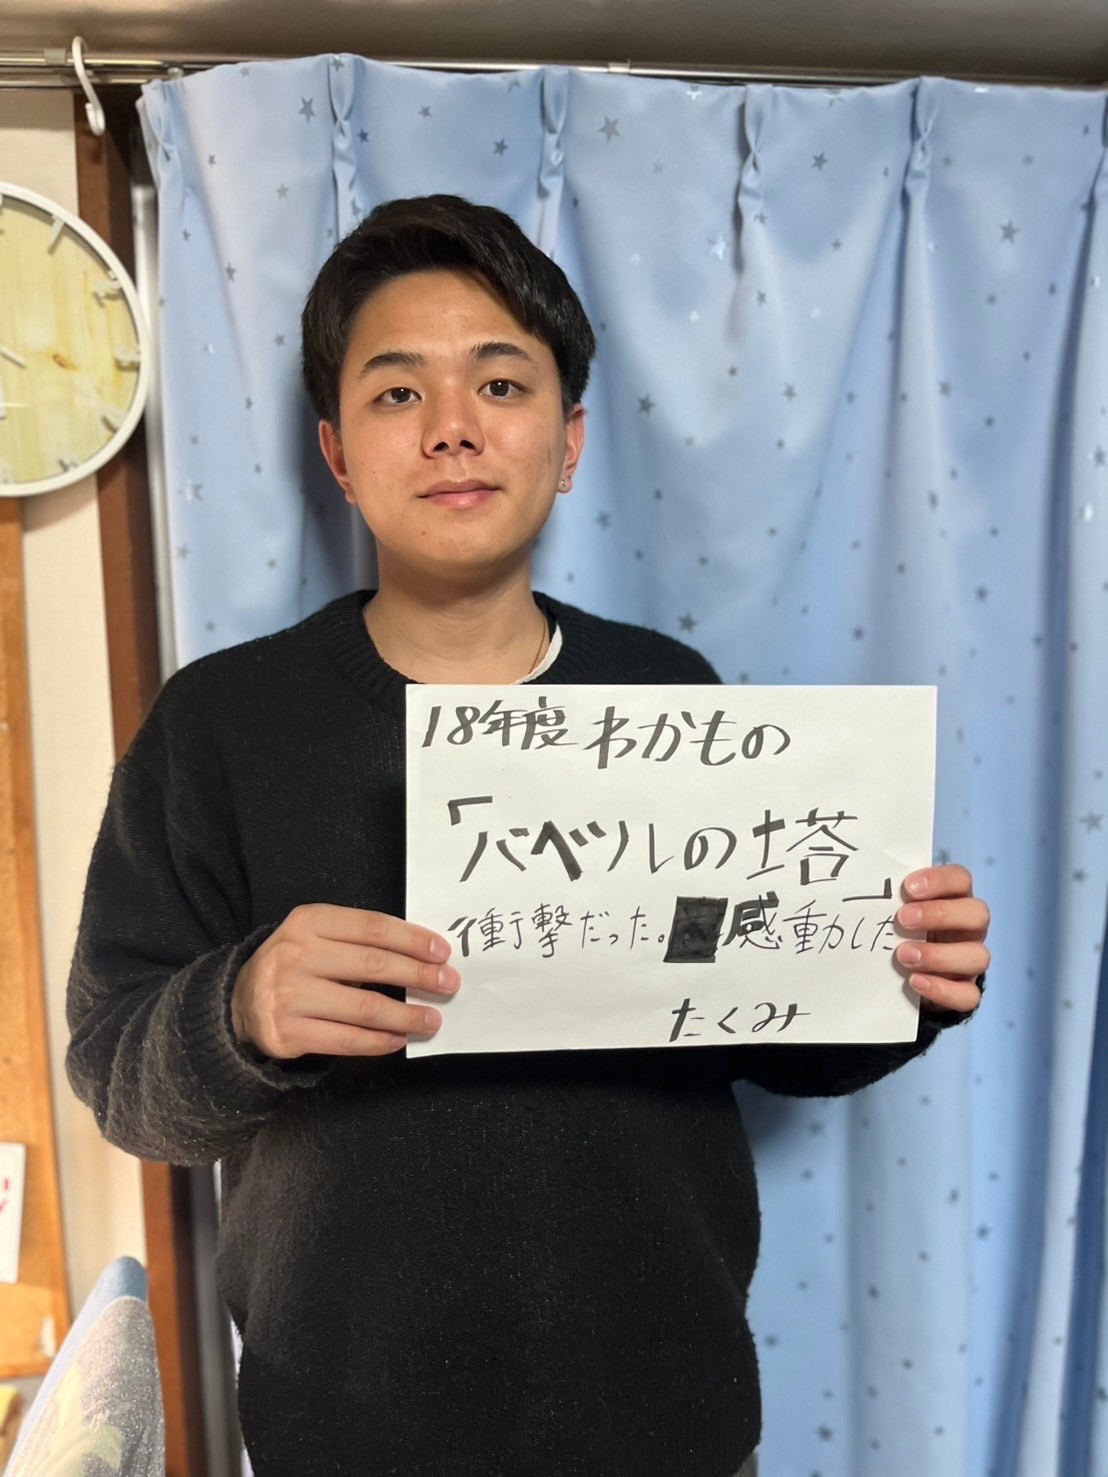 18年度 わかもの
「バベルの塔」
衝撃だった。感動した
たくみ